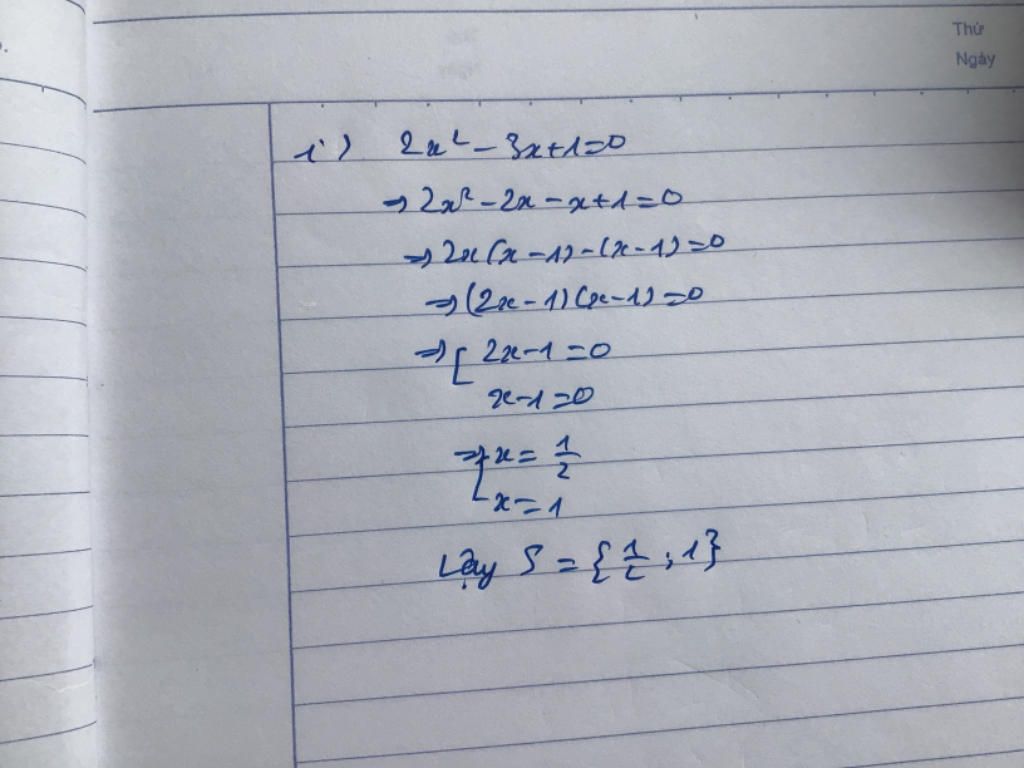 Thứ
Ngày
i) 2x² - 3x + 1 = 0
⇒ 2x² - 2x - x + 1 = 0
⇒ 2x(x - 1) - (x - 1) = 0
⇒ (2x - 1)(x - 1) = 0
⇒ [ 2x - 1 = 0
x - 1 = 0
⇒ [ x = 1/2
x = 1
Vậy S = {1/2 ; 1}